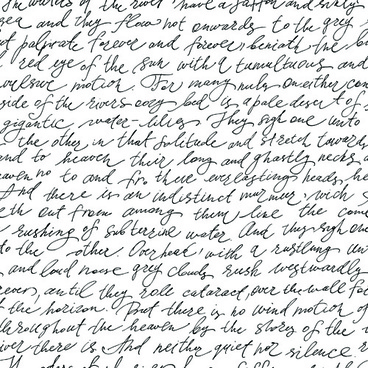 The waters of the river have a saffron and sickly
and they flow not onwards to the grey
palpitate forever and forever beneath the
red eye of the sun with a tumultuous and
motion. For many miles on either
side of the rivers oozy bed is a pale desert of
gigantic water-lilies. They sigh one unto
the other in that solitude and stretch towards
to heaven their long and ghastly necks
no to and fro there everlasting heads
And there is an indistinct murmur, wich
eth out from among them like the
rushing of subterrine water. And they sigh one
to the other. Overhead with a rustling
and loud noise grey clouds rush westwardly
until they role cataract, over the wall
the horizon. But there is no wind motion
throughout the heaven by the shores of the
iver there is And neither quiet nor silence